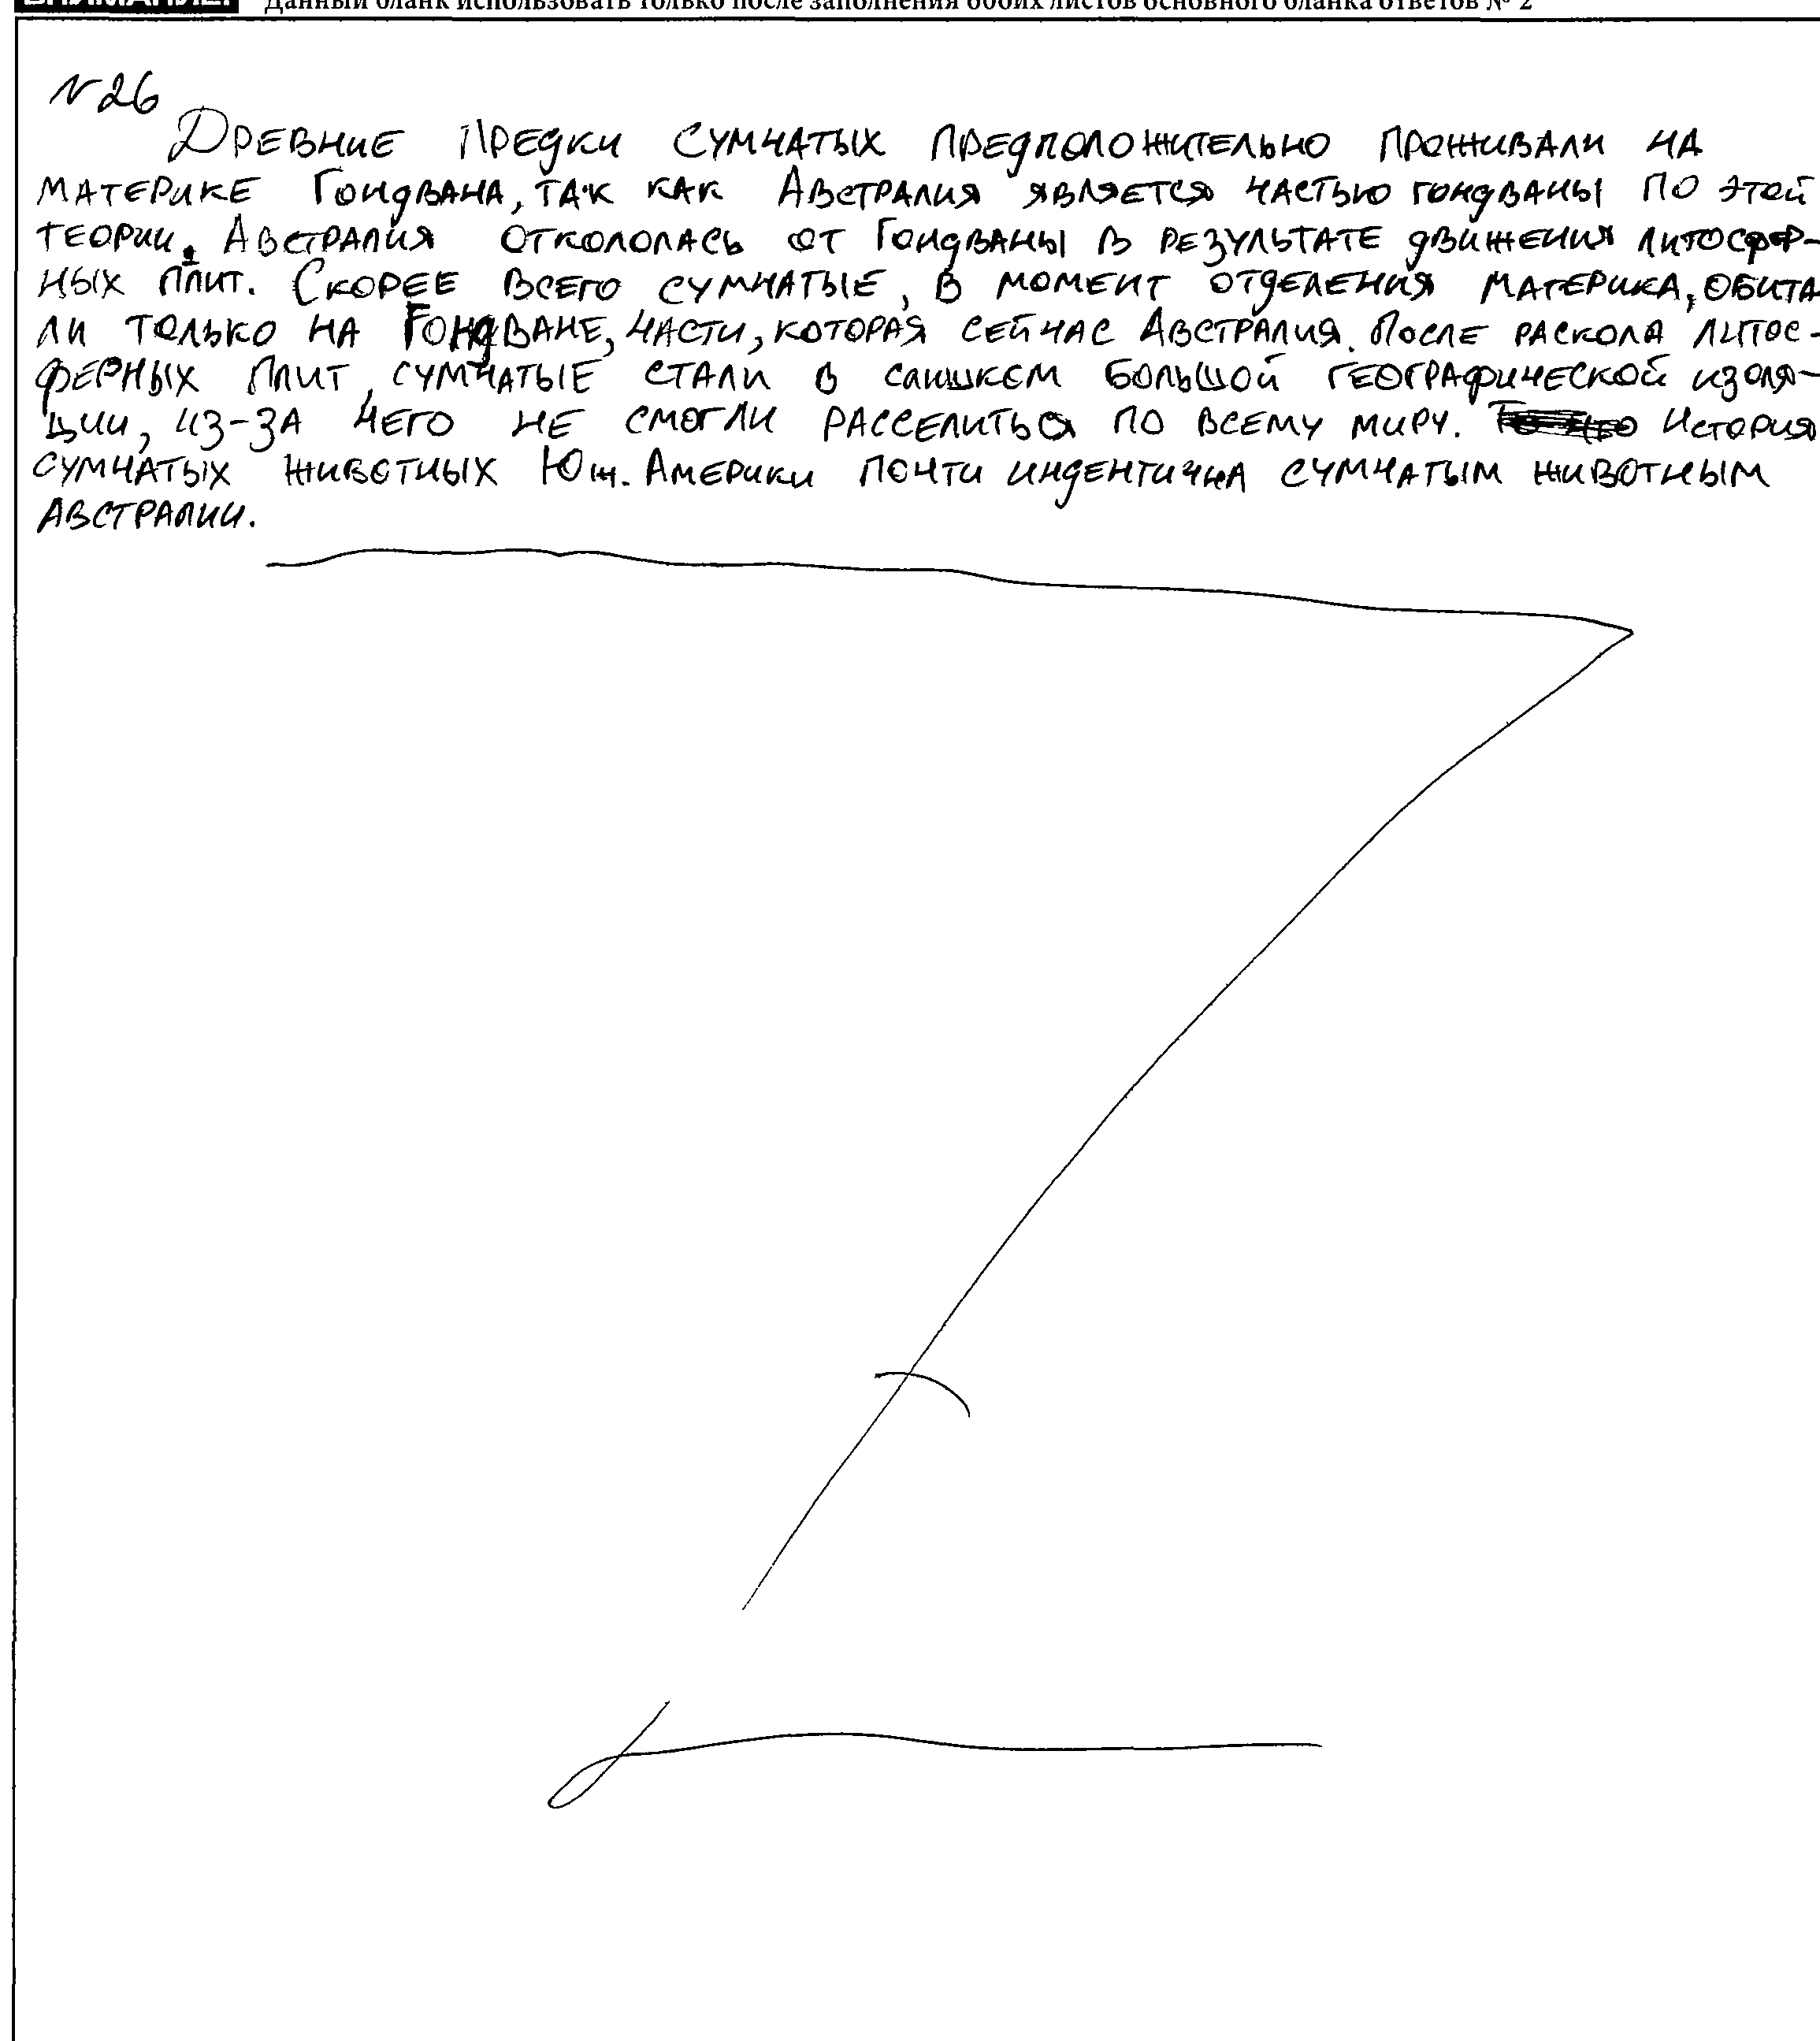 ВНИМАНИЕ! Данный бланк использовать только после заполнения обоих листов основного бланка ответов № 2
№26
Древние предки сумчатых предположительно проживали на
материке Гондвана, так как Австралия является частью гондваны по этой
теории. Австралия откололась от Гондваны в результате движения литосфер-
ных плит. Скорее всего сумчатые, в момент отделения материка, обита-
ли только на Гондване, части, которая сейчас Австралия. После раскола литос-
ферных плит, сумчатые стали в слишком большой географической изоля-
ции, из-за чего не смогли расселиться по всему миру. История
сумчатых животных Юж. Америки почти индентична сумчатым животным
Австралии.